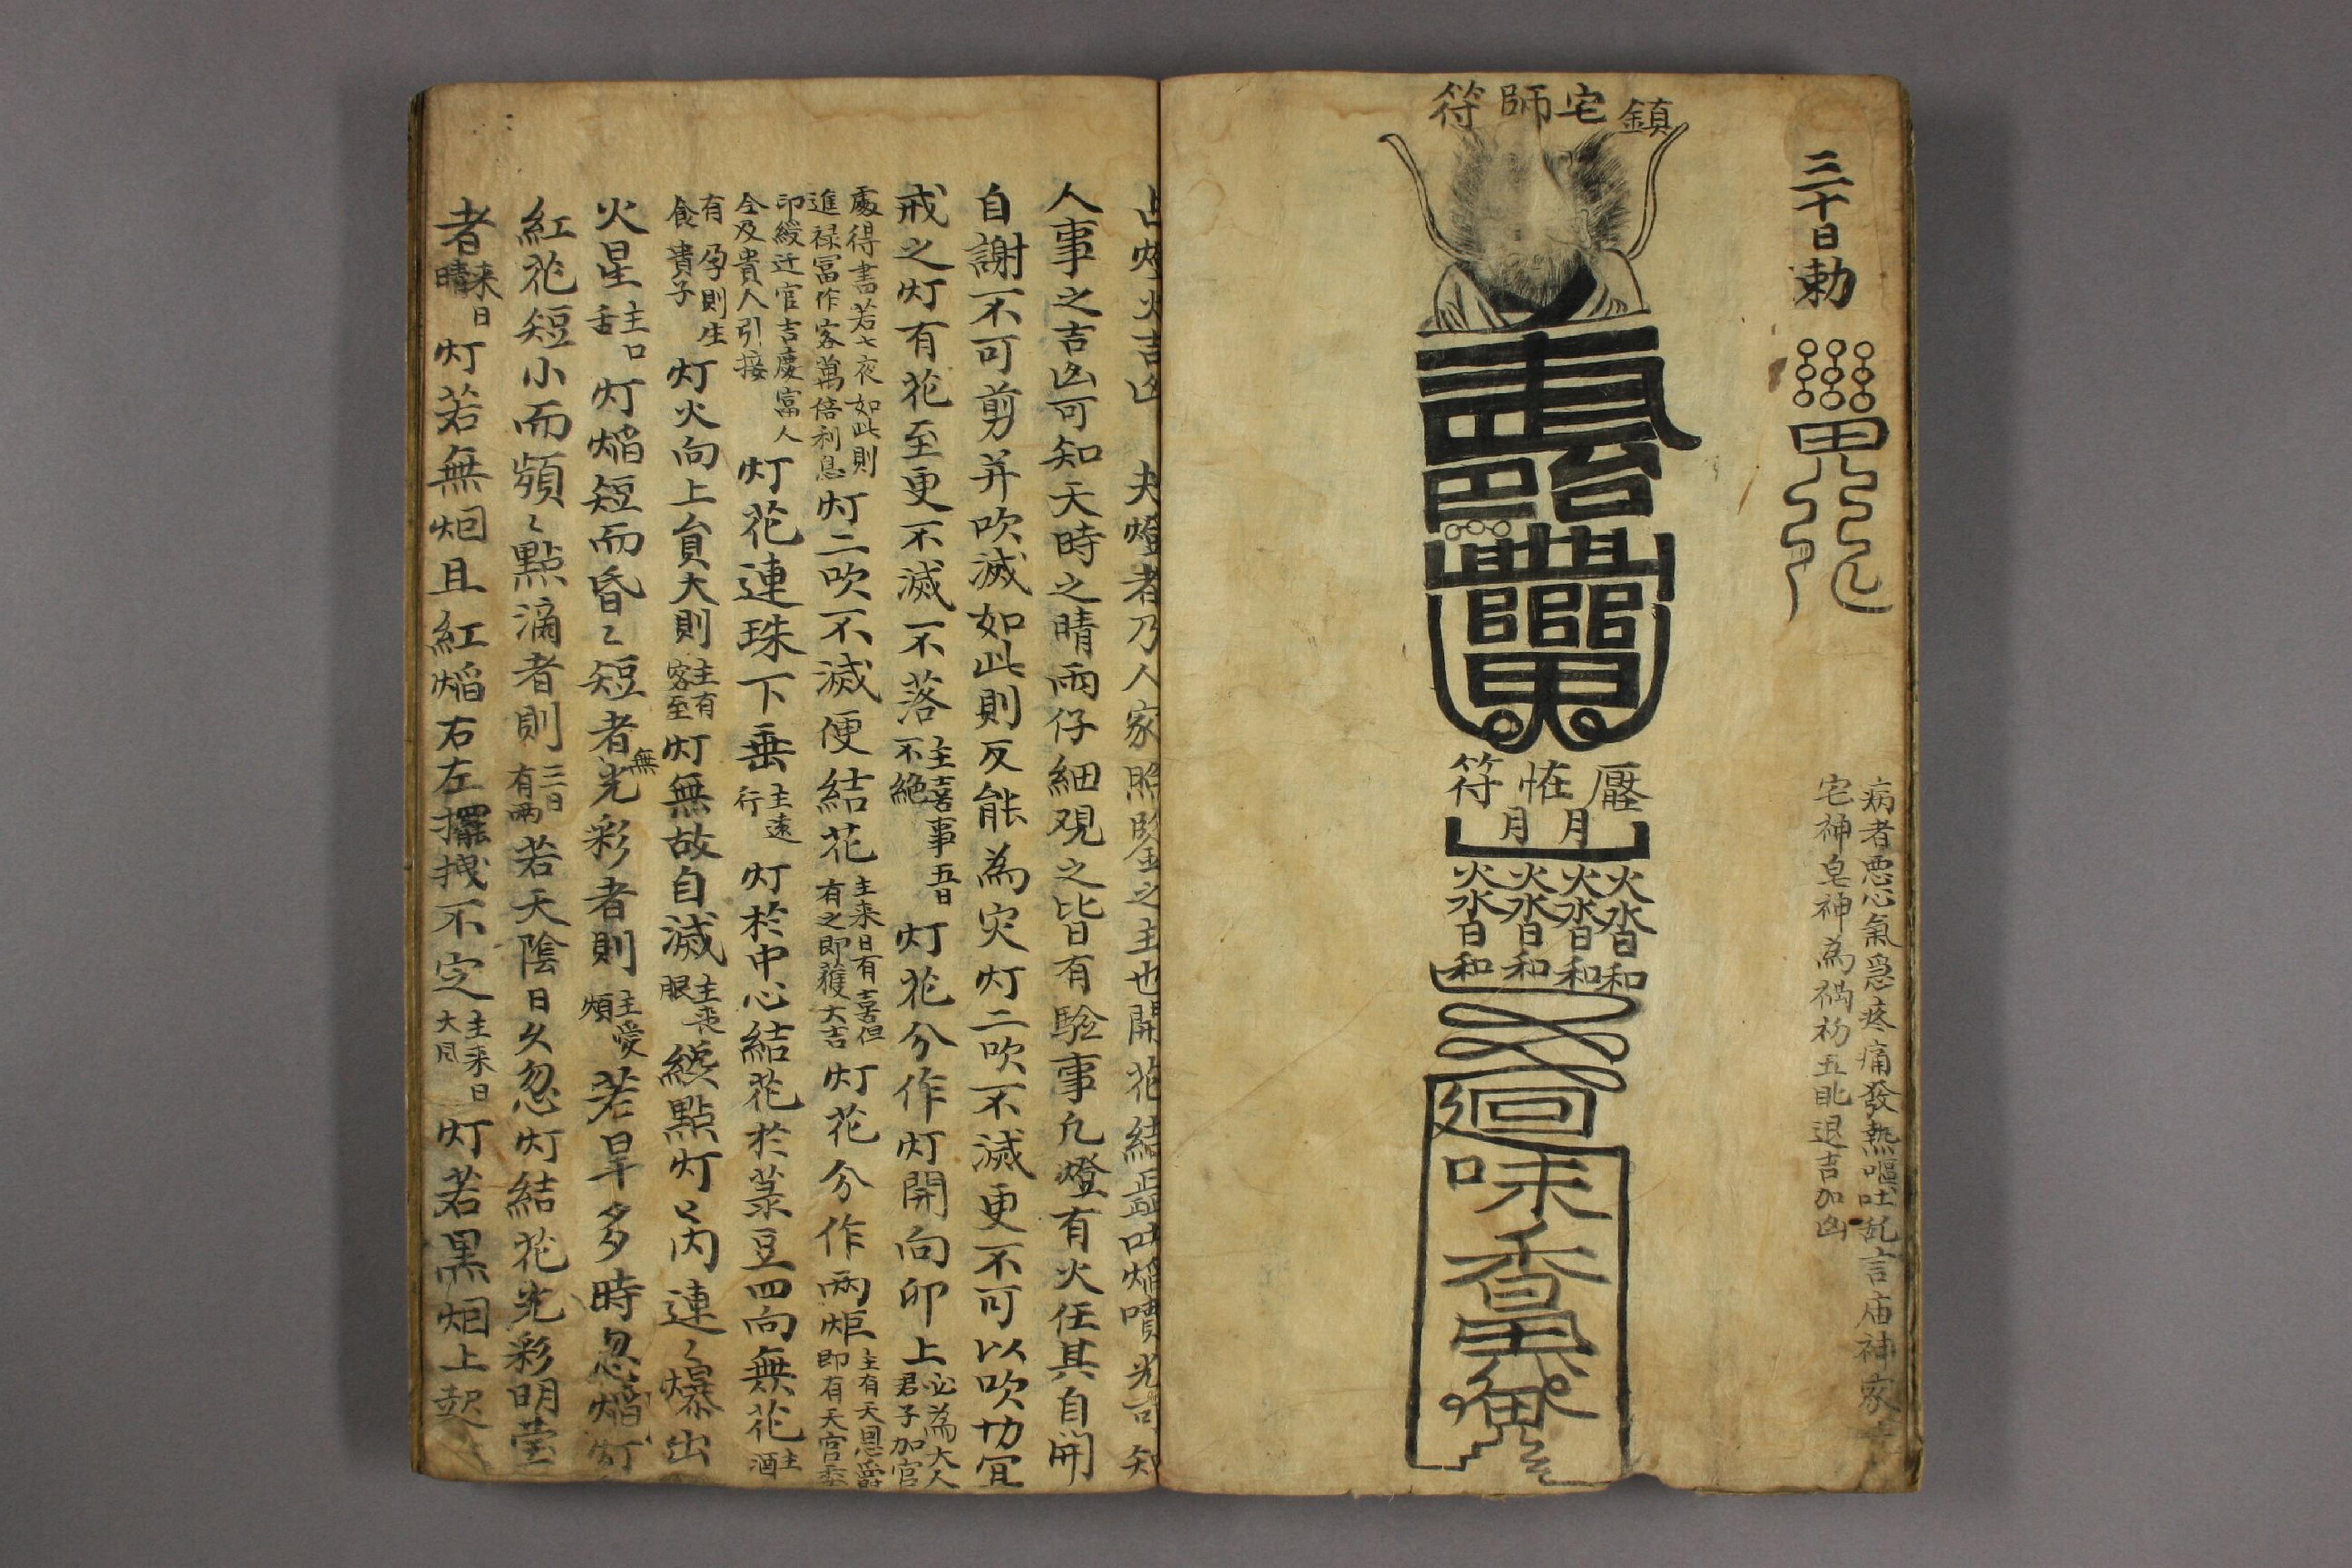 三十日勅
病者悪心氣急疼痛發熱嘔吐乱言庙神家
宅神皂神為禍初五日退吉加凶
鎮宅師符
壓怪符
月月
火火火火
水水水水
日日日日
和和和和
廻
味
香
占灯火吉凶 夫燈者乃人家照鑒之主也開花結蕊吐焰噴光 知
人事之吉凶可知天時之晴雨仔細观之皆有驗事凢燈有火任其自開
自謝不可剪并吹滅如此則反能為灾灯二吹不滅更不可以吹切宜
戒之灯有花至更不滅不落主喜事五日不絶灯花分作灯開向卯上必為大人君子加官
進禄冨作客萬倍利息灯二吹不滅便結花主来日有喜但有之即獲大吉灯花分作兩炬主有天恩爵即有天官委
處得書若七夜如此則
印綬迁官吉慶富人全及貴人引接灯花連珠下垂主遠行灯於中心結花於菉豆四向無花主酒
食有孕則生貴子灯火向上負大則主有客至灯無故自滅主喪服緫點灯以內連〻爆出
火星主口舌灯焰短而昏〻短者無光彩者則主愛煩若旱多時忽焰灯
紅花短小而頻〻點滴者則三日有雨若天陰日久忽灯結花光彩明莹
者来日晴灯若無烟且紅焰右左擺拽不定主来日大風灯若黑烟上起